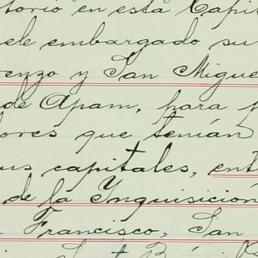 torio en esta Capi
ele embargado su
renzo y San Migue
de Apam, para p
dores que tenían
us capitales, ent
de la Inquisición
Francisco, San